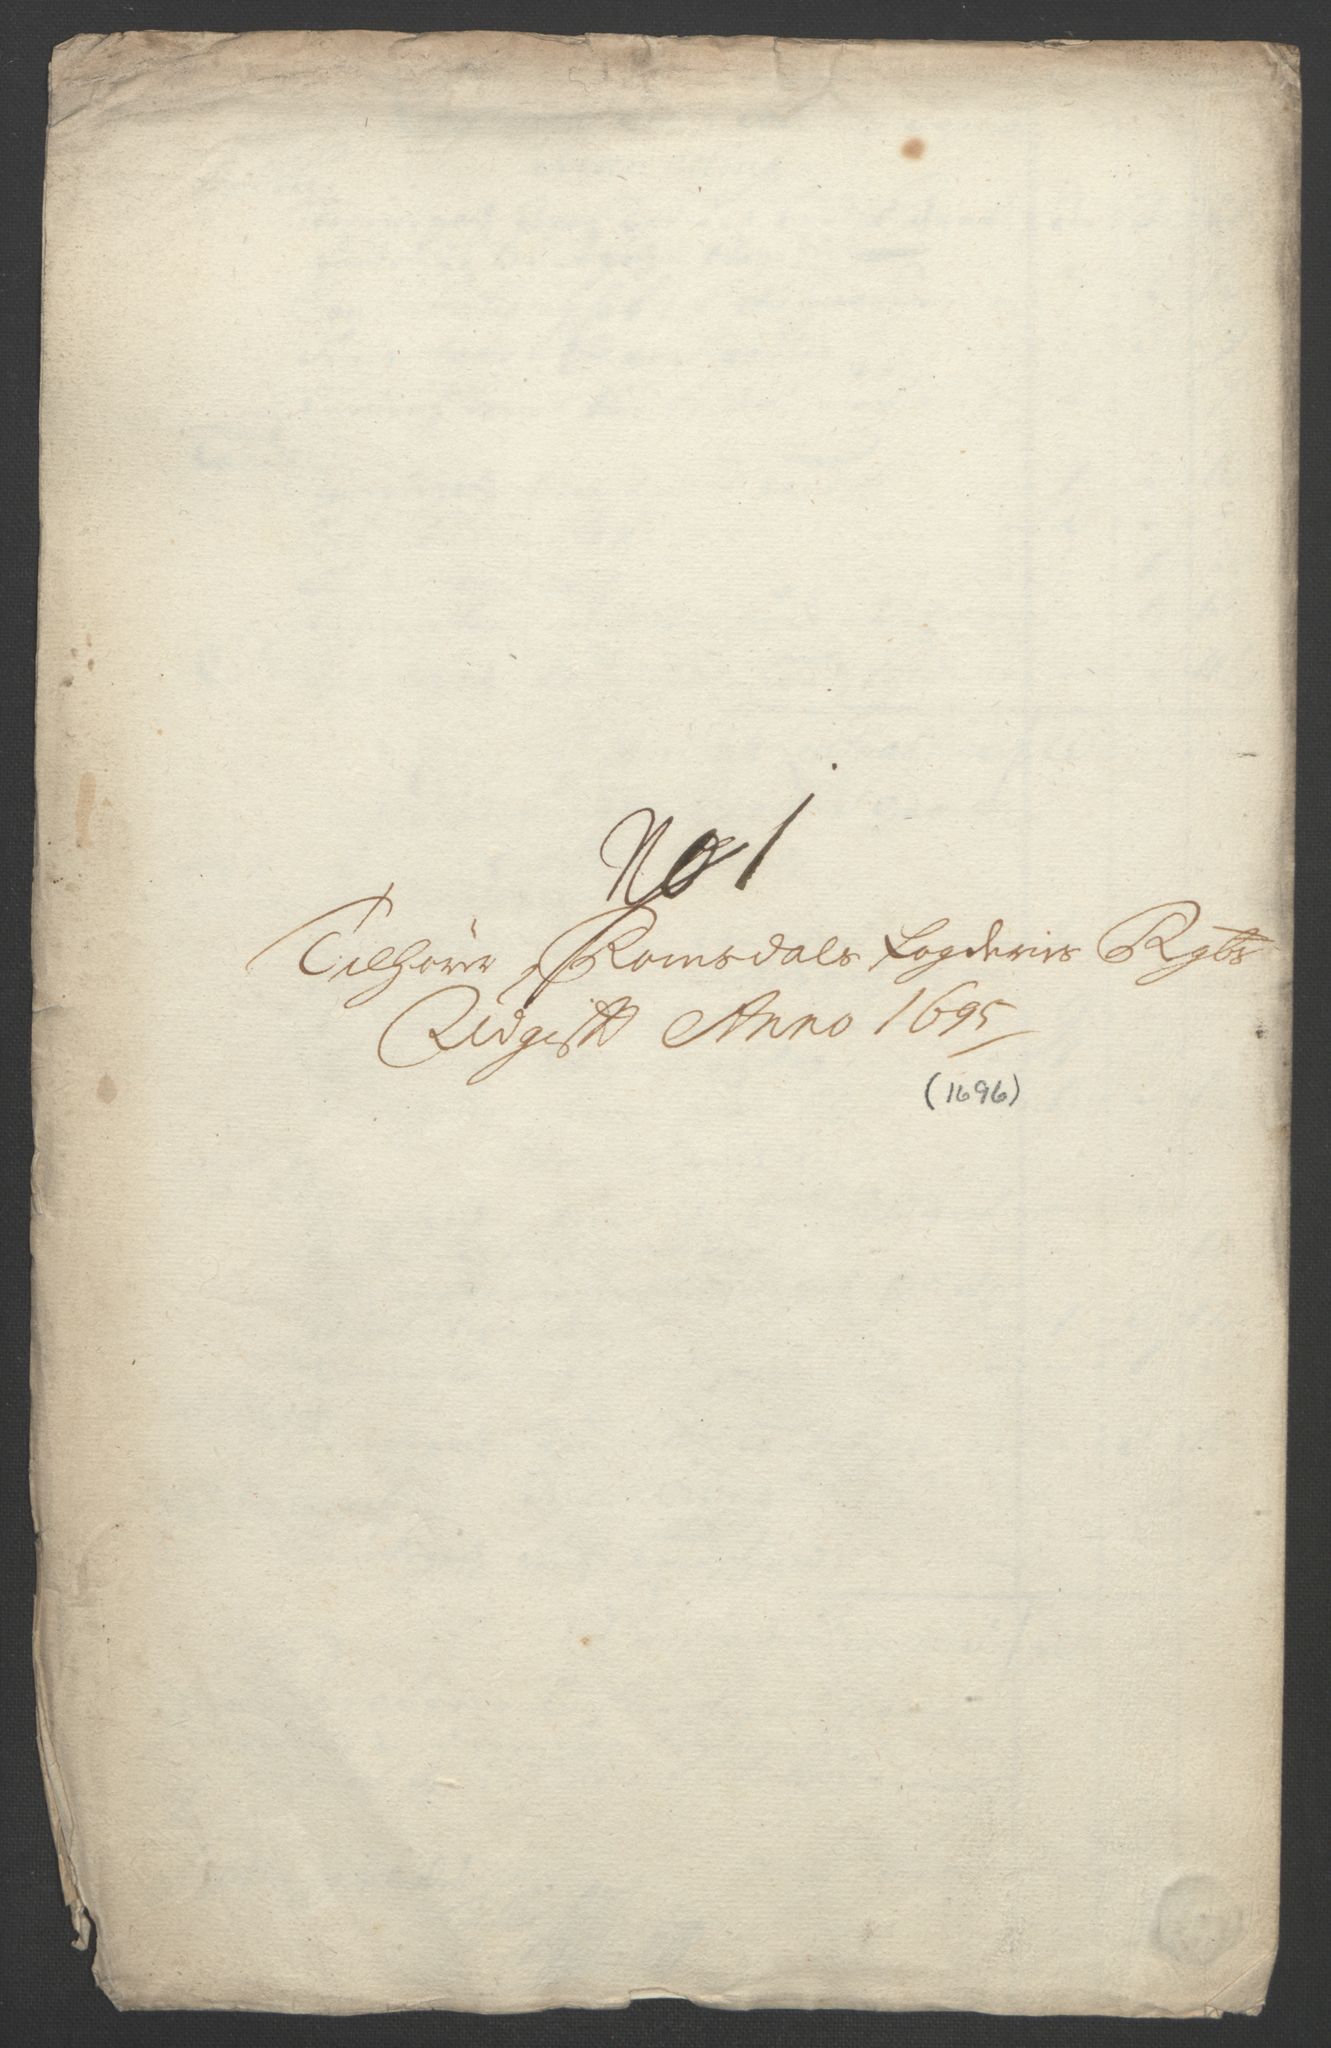 No 1
Tilhörer Romsdals Fogderies Rgbs
Udgifft Anno 1695
(1696)